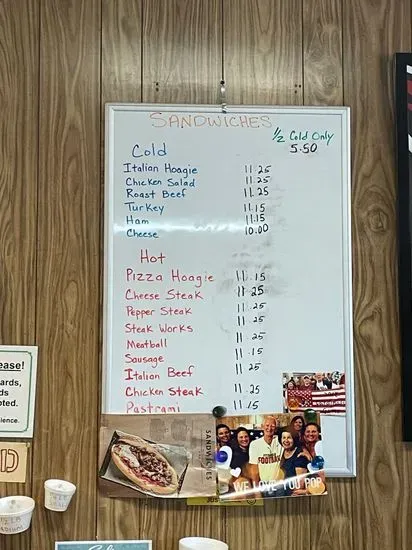 SANDWICHES
1/2 Cold Only
5.50
Cold
Italian Hoagie 11.25
Chicken Salad 11.25
Roast Beef 11.25
Turkey 11.15
Ham 11.15
Cheese 10.00
Hot
Pizza Hoagie 11.15
Cheese Steak 11.25
Pepper Steak 11.25
Steak Works 11.25
Meatball 11.25
Sausage 11.15
Italian Beef 11.25
Chicken Steak 11.25
Pastrami 11.15
SANDWICHES
WE LOVE YOU POP
ease!
ards,
ds
pted.
ience.
D